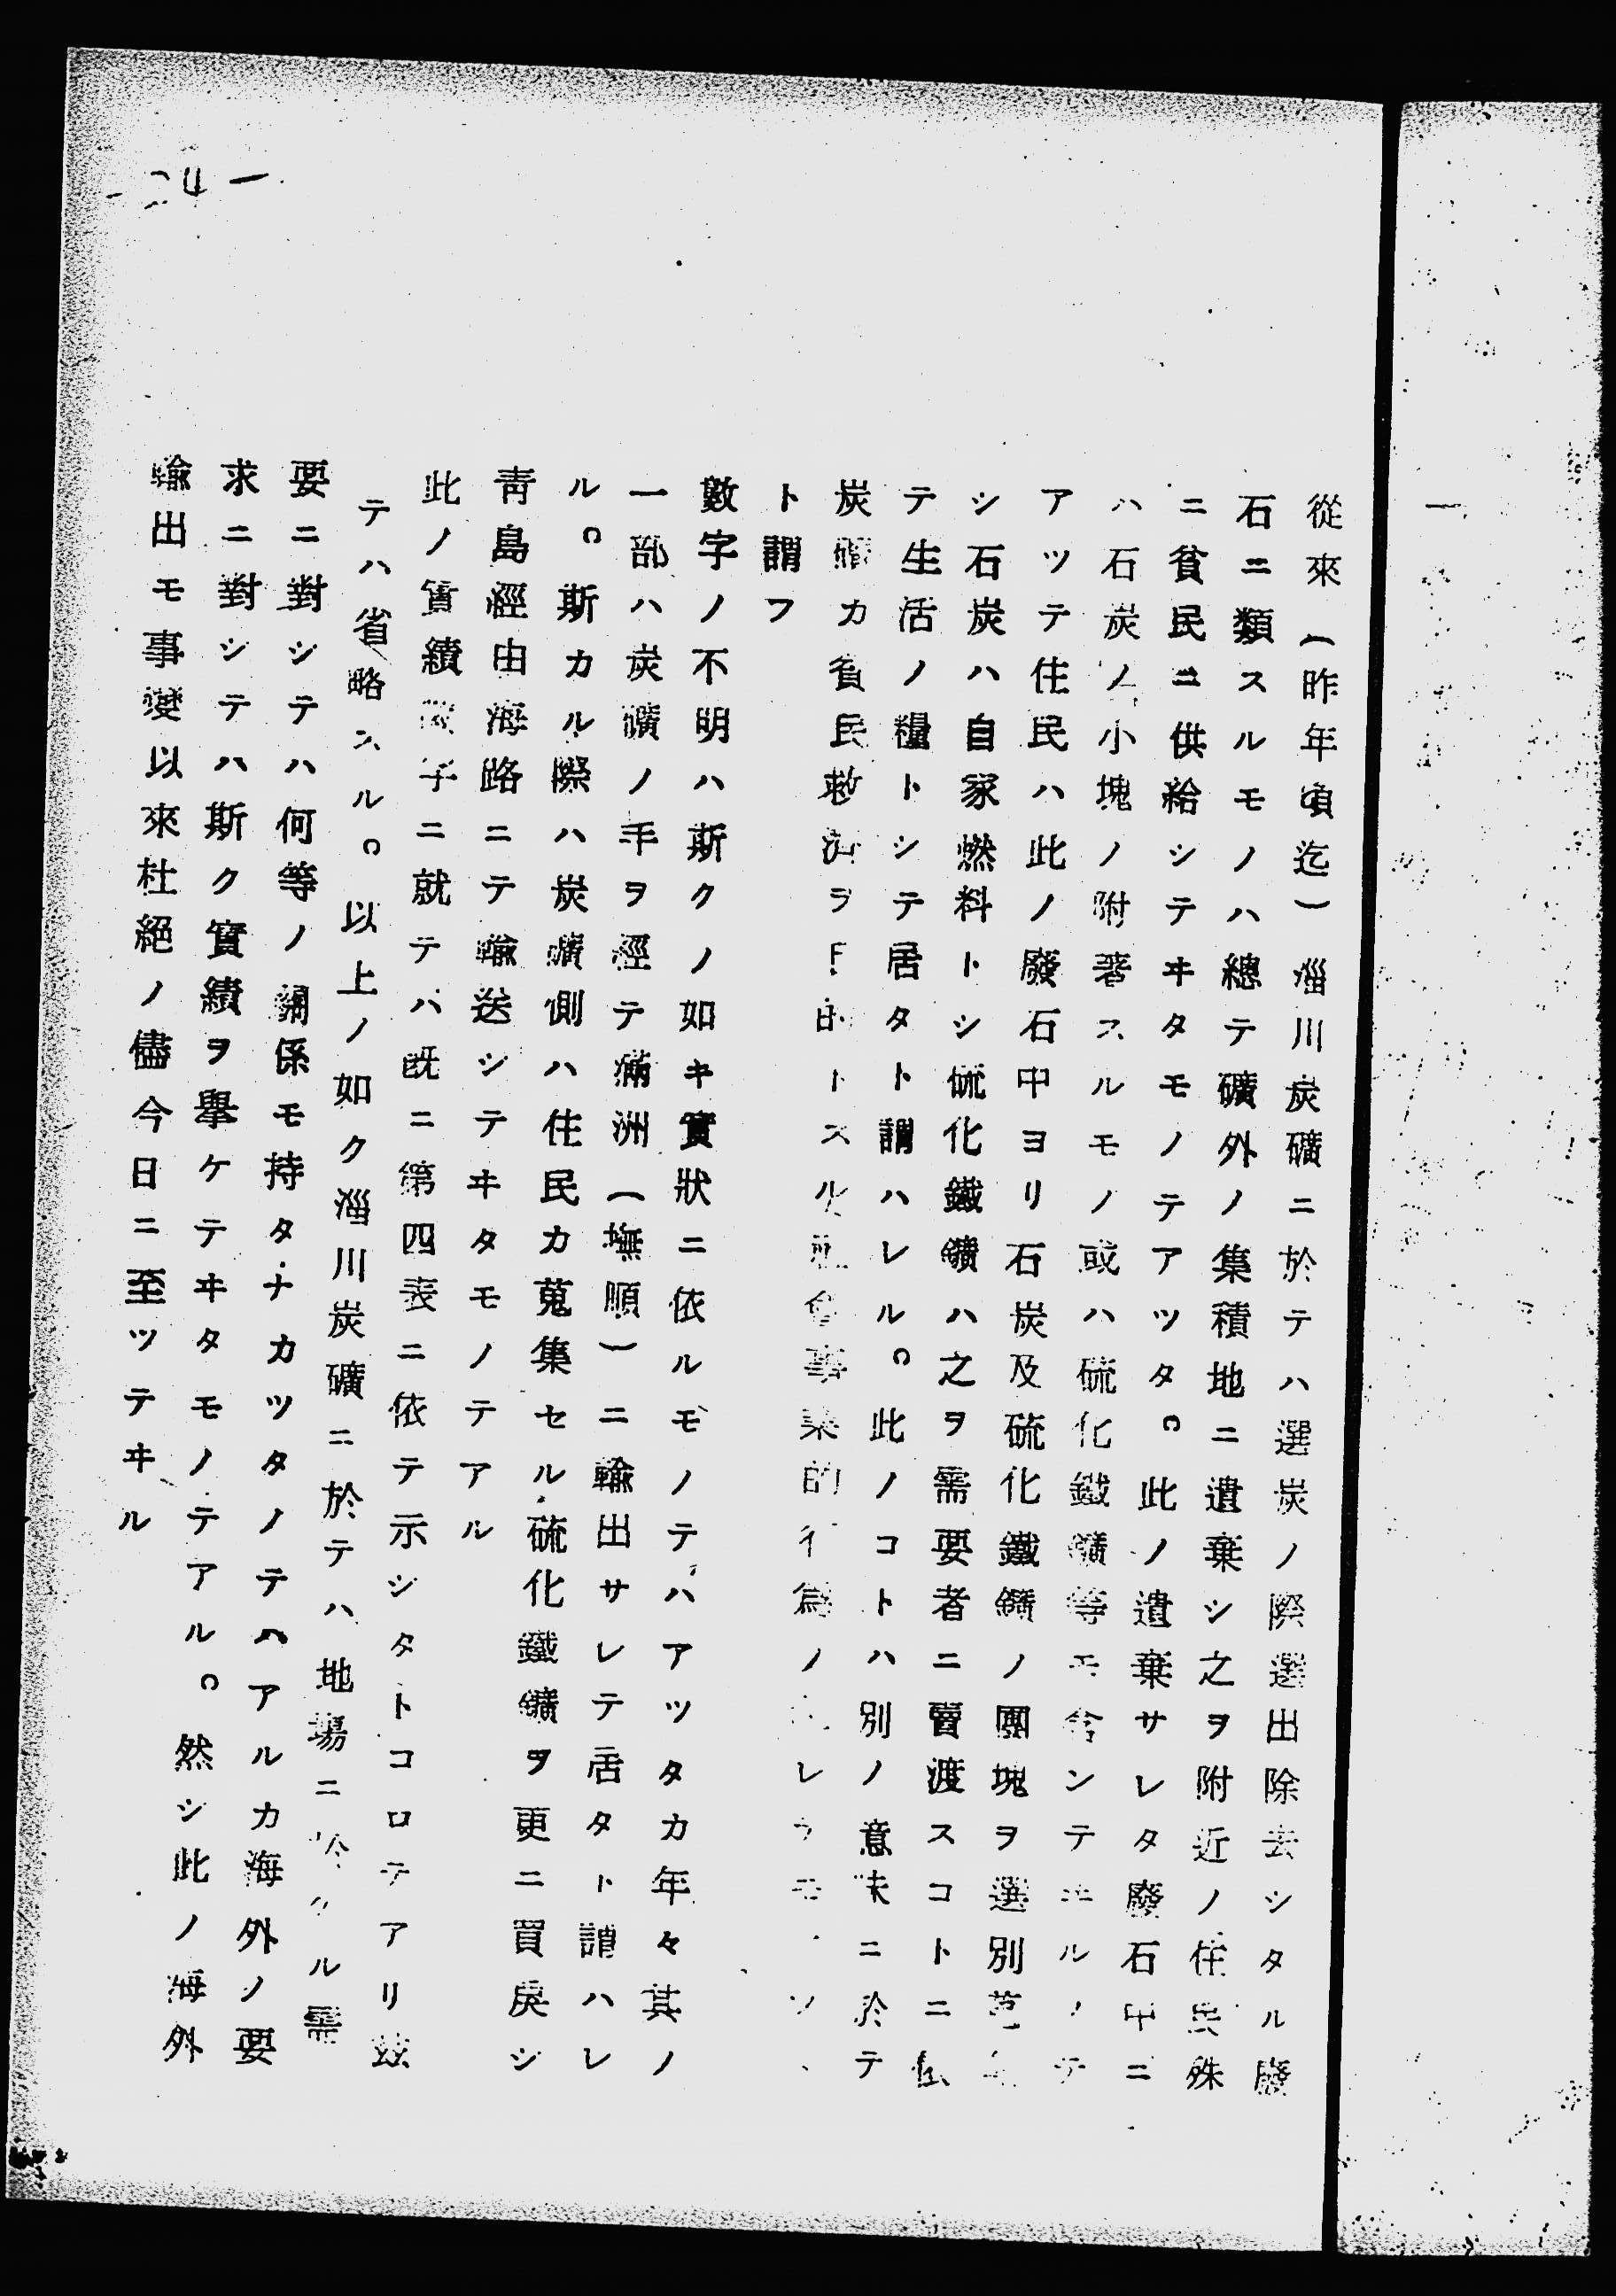 從來(昨年頃迄)淄川炭礦ニ於テハ選炭ノ際選出除去シタル廢
石ニ類スルモノハ總テ礦外ノ集積地ニ遺棄シ之ヲ附近ノ住民殊
ニ貧民ニ供給シテヰタモノテアツタ。此ノ遺棄サレタ廢石中ニ
ハ石炭ノ小塊ノ附著スルモノ或ハ硫化鐵鑛等モ含ンテヰルノテ
アツテ住民ハ此ノ廢石中ヨリ石炭及硫化鐵鑛ノ團塊ヲ選別蒐集
シ石炭ハ自家燃料トシ硫化鐵鑛ハ之ヲ需要者ニ賣渡スコトニ依
テ生活ノ糧トシテ居タト謂ハレル。此ノコトハ別ノ意味ニ於テ
炭礦カ貧民救濟ヲ目的トスル社會事業的行爲ノ レラモ
ト謂フ
數字ノ不明ハ斯クノ如キ實狀ニ依ルモノテハアツタカ年々其ノ
一部ハ炭礦ノ手ヲ經テ滿洲(撫順)ニ輸出サレテ居タト謂ハレ
ル。斯カル際ハ炭礦側ハ住民カ蒐集セル硫化鐵鑛ヲ更ニ買戾シ
靑島經由海路ニテ輸送シテヰタモノテアル
此ノ實績數字ニ就テハ既ニ第四表ニ依テ示シタトコロテアリ玆
テハ省略スル。以上ノ如ク淄川炭礦ニ於テハ地場ニ於ケル需
要ニ對シテハ何等ノ關係モ持タナカツタノテハアルカ海外ノ要
求ニ對シテハ斯ク實績ヲ擧ケテヰタモノテアル。然シ此ノ海外
輸出モ事變以來杜絕ノ儘今日ニ至ツテヰル
—24—